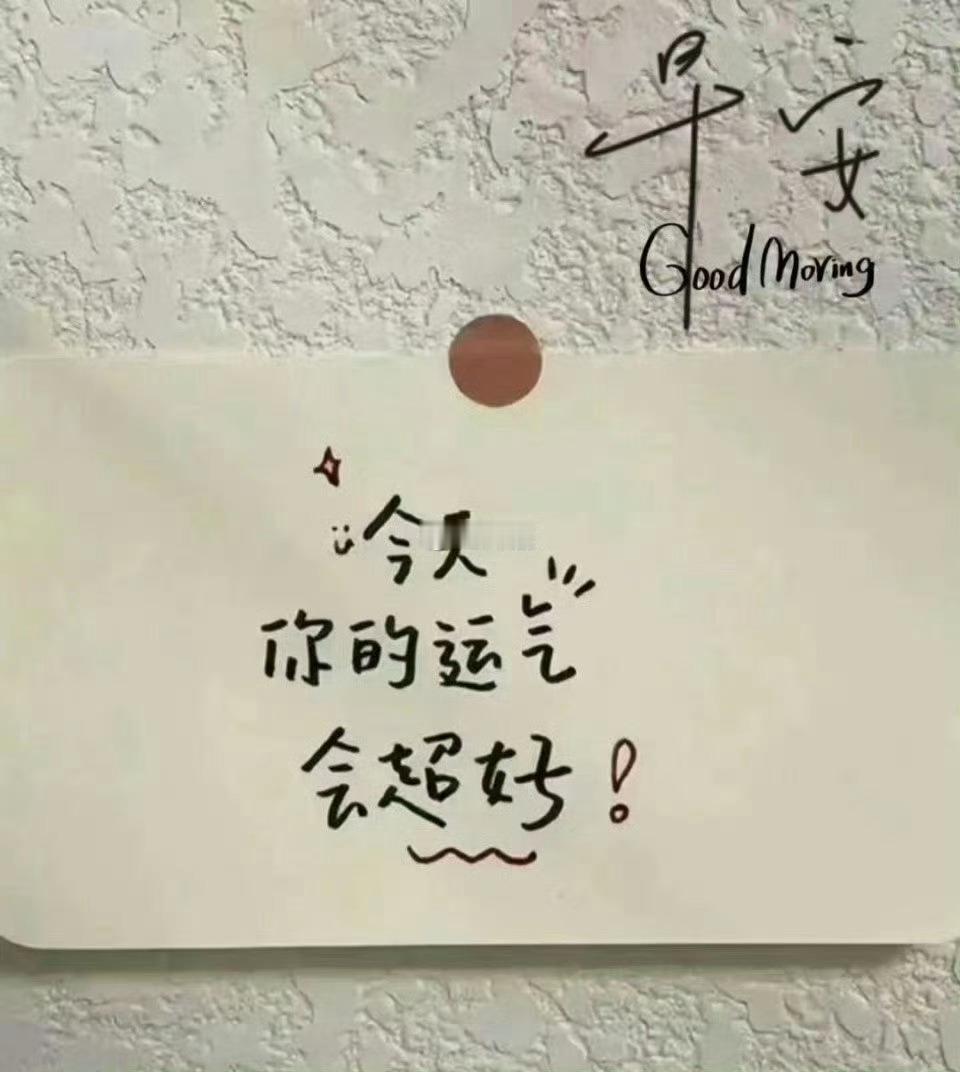 早安
Good Moring
今天
你的运气
会超好！